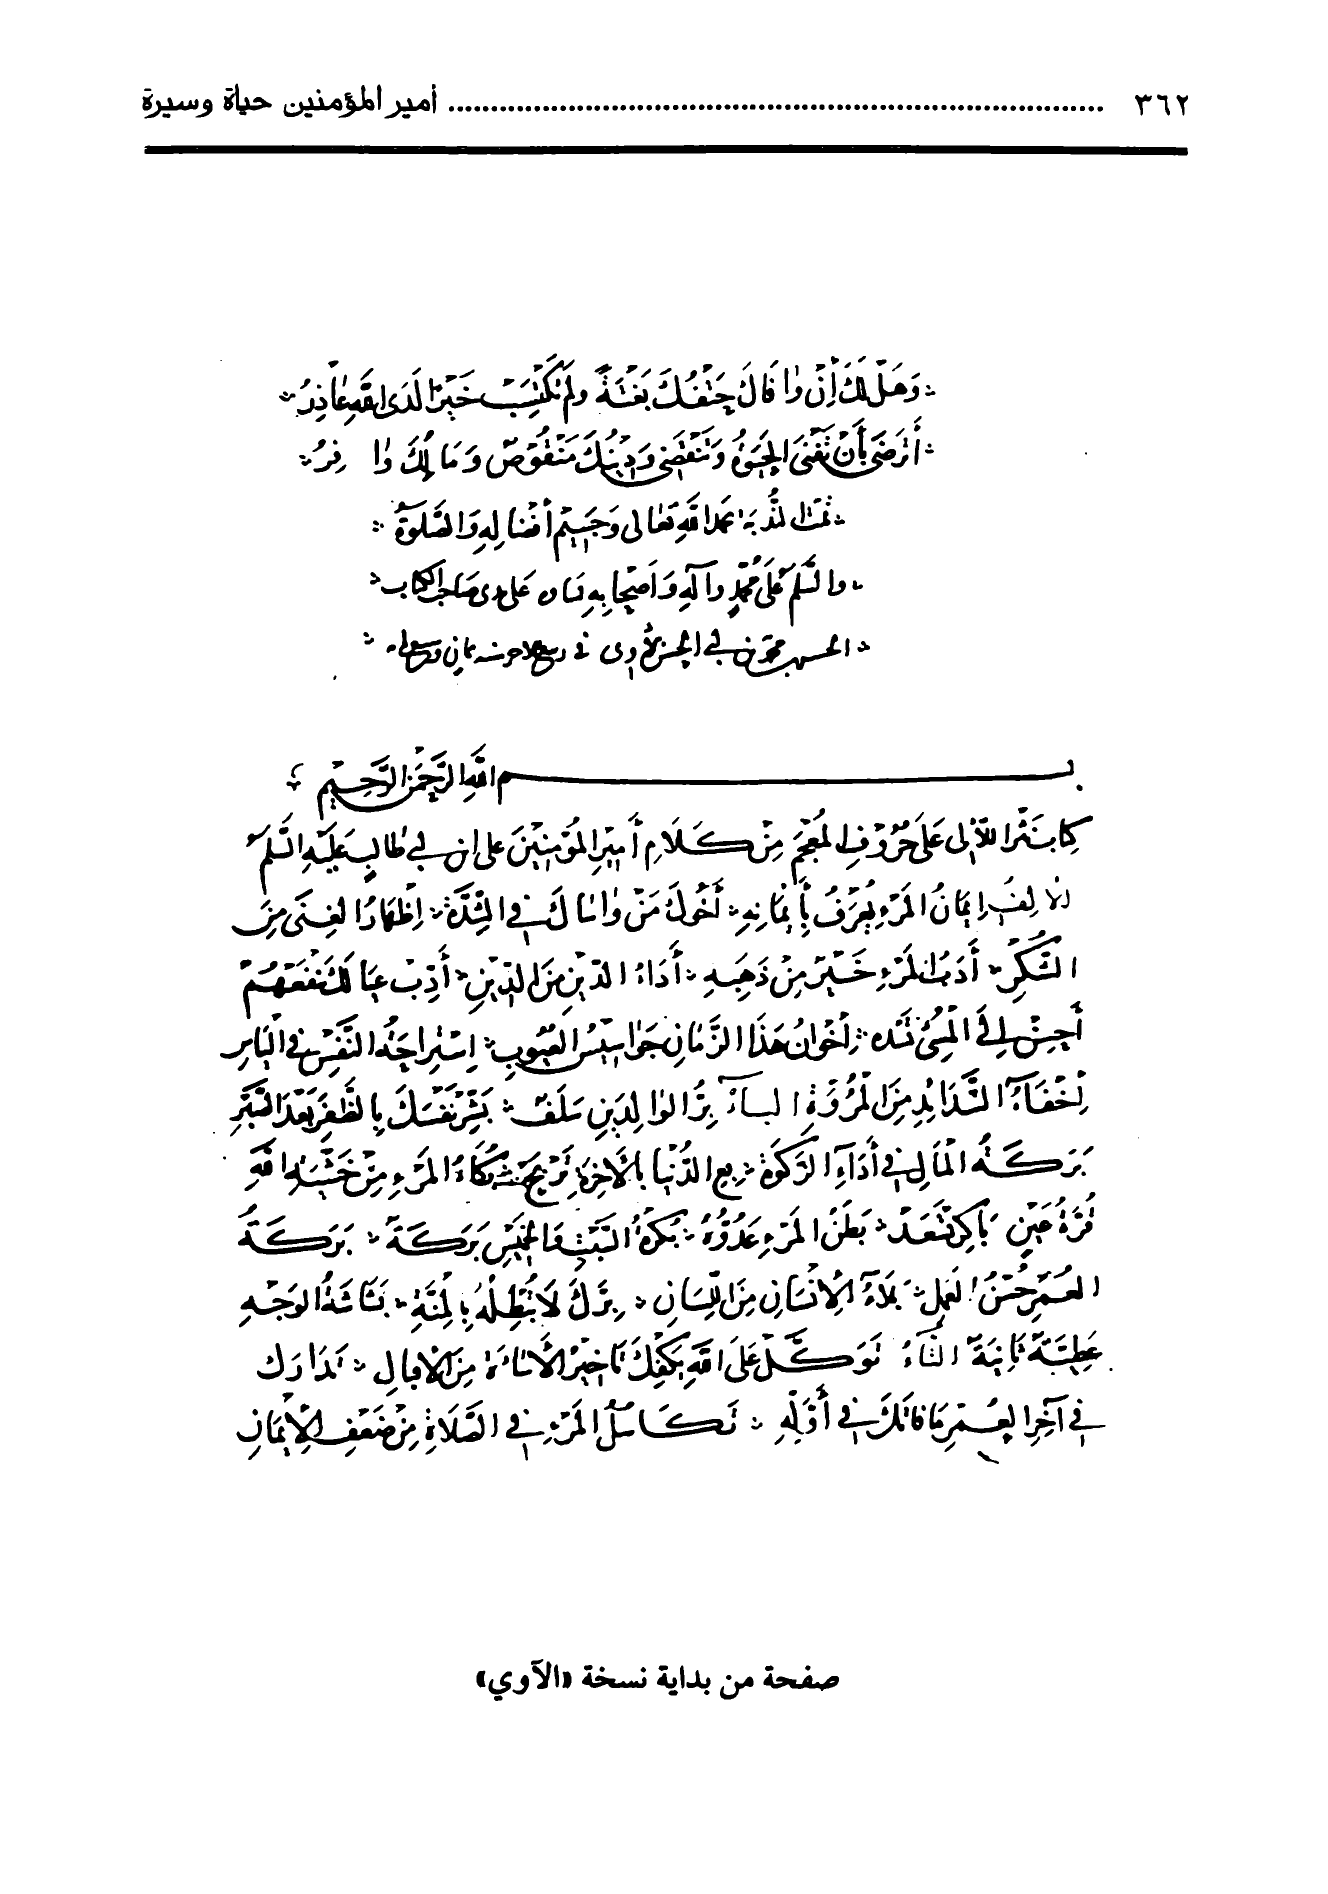 ٣٦٢ ........ أمير المؤمنين حياة وسيرة
وَهَلْ لَكَ إِنْ وَافَاكَ حَتْفُكَ بَغْتَةً وَلَمْ تَكْتَسِبْ خَيْرًا لَدَى اللهِ عَاذِرُ
أَتَرْضَى بِأَنْ تَفْنَى الحَيٰوةُ وَتَنْقَضِي وَدِينُكَ مَنْقُوصٌ وَمَالُكَ وَافِرُ
تمت الندبة بحمد الله تعالى وجسيم أفضاله والصلوة
والسلم على محمد وآله وأصحابه على يدي صاحب الكتاب
الحسين محمد بن أبي الحسن الآوي في ربيع الآخر سنة ثمان
بسم الله الرحمن الرحيم
كتاب نثر اللآلي على حروف المعجم من كلام أمير المؤمنين علي بن أبي طالب عليه السلم
الألف إيمان المرء يعرف بأيمانه أخوك من واساك في الشدة إظهار الغنى من
الشكر أدب المرء خير من ذهبه أداء الدين من الدين أدب عيالك تنفعهم
أحسن إلى المسيء تسده إخوان هذا الزمان جواسيس العيوب استراحة النفس في اليأس
إخفاء الشدائد من المروة الباء بر الوالدين سلف بشر نفسك بالظفر بعد الصبر
بركة المال في أداء الزكوة بع الدنيا بالآخرة تربح بكاء المرء من خشية الله
قرة عين باكر تسعد بطن المرء عدوه بكرة السبت والخميس بركة بركة
العمر حسن العمل بلاء الإنسان من اللسان برك لا تبطله بالمنة بشاشة الوجه
عطية ثانية التاء توكل على الله يكفك تأخير الإساءة من الإقبال تدارك
في آخر العمر ما فاتك في أوله تكاسل المرء في الصلاة من ضعف الإيمان
صفحة من بداية نسخة «الآوي»